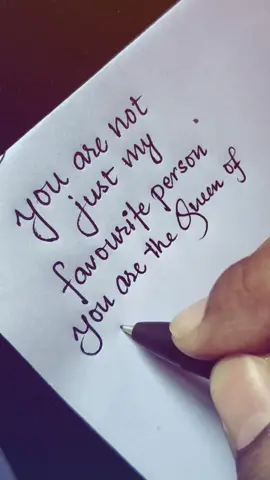 you are not
just my
favourite person
you are the Queen of